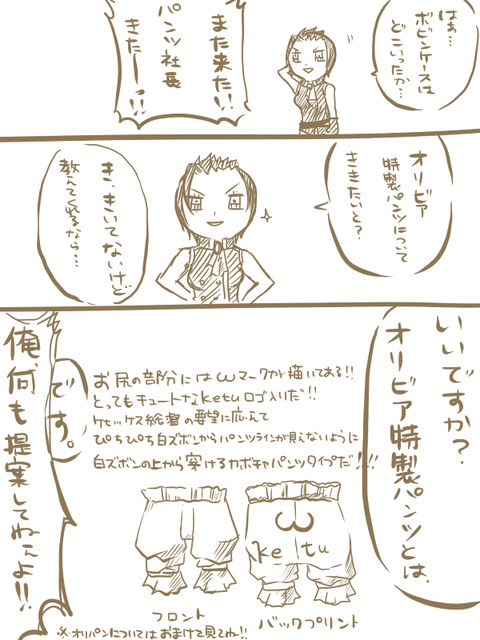 はぁ…
ボビンケースは
どこいったか…
また来た!!
パンツ社長
きたーっ!!
オリビア
特製パンツについて
ききたいと?
き、きいてないけど
教えてくれるなら…
いいですか?
オリビア特製パンツとは、
お尻の部分にはωマークが描いてある!!
とってもキュートなketuロゴ入りだ!!
ケビッケス総督の要望に応えて
ぴちぴち白ズボンからパンツラインが見えないように
白ズボンの上から穿けるカボチャパンツタイプだ!!!
です。
俺、何も提案してねぇよ!!
ω
ke tu
フロント
バックプリント
※オリパンについてはおまけを見てね!!